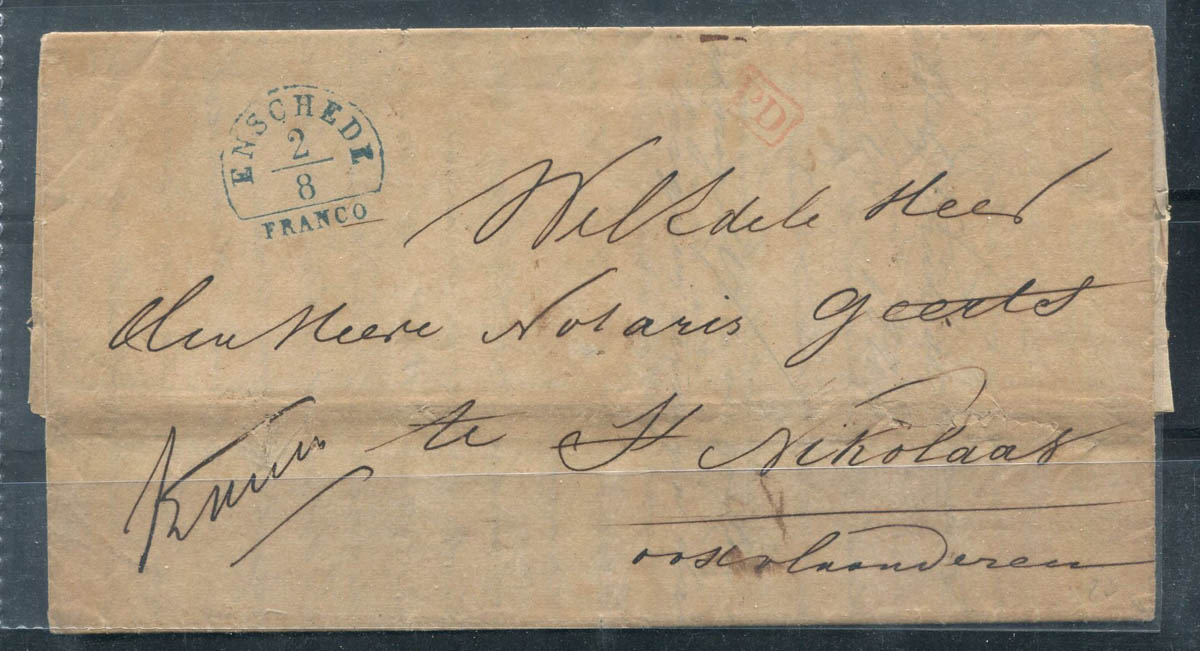 ENSCHEDE
2
8
FRANCO
PD
WelEdele Heer
den Heere Notaris Geerts
te St Nikolaas
oostvlaanderen